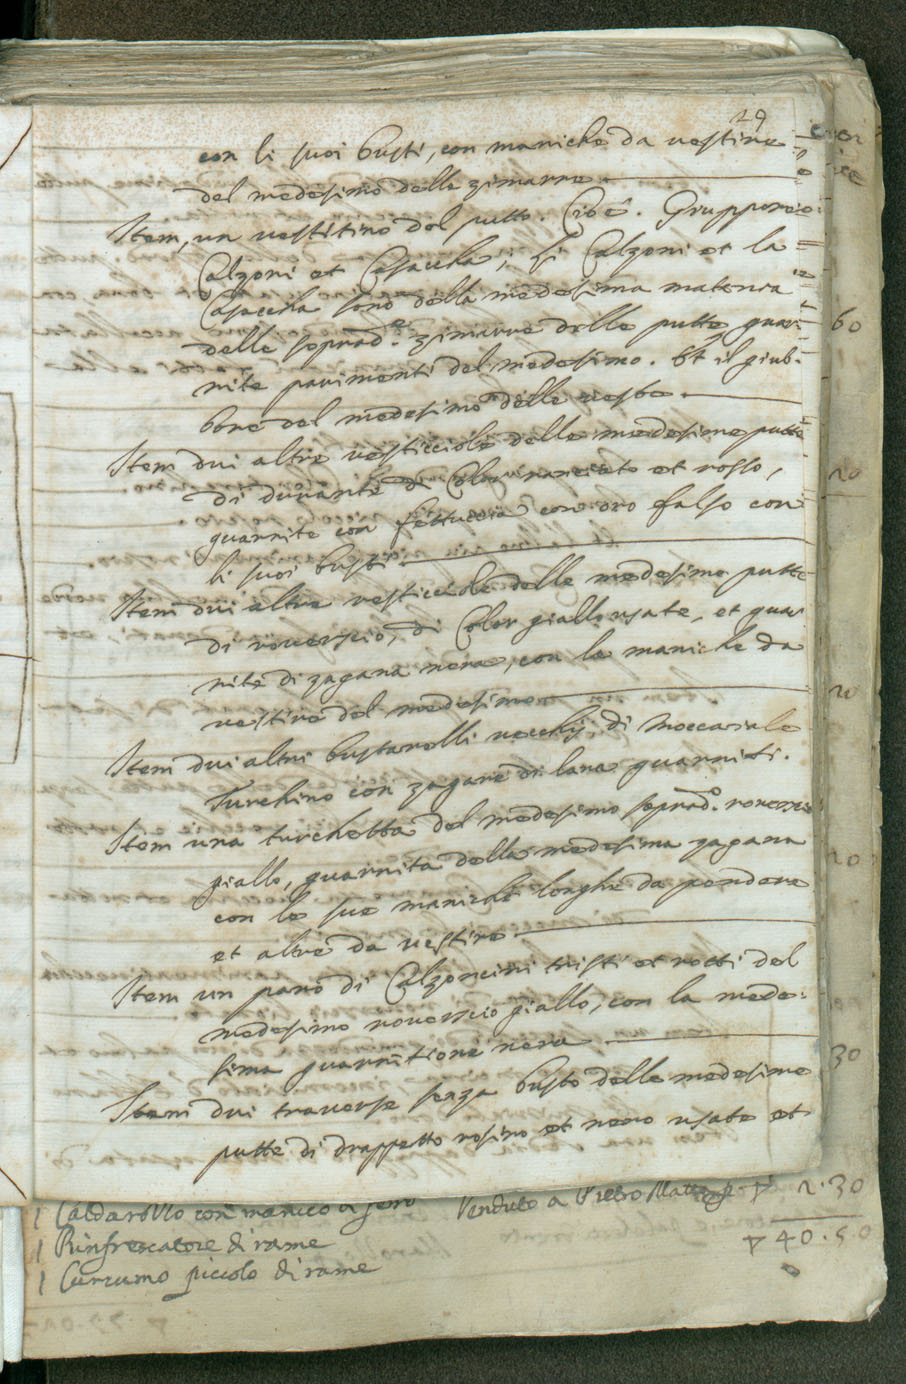 19
con li suoi busti, con maniche da vestire
del medesimo delle zimarre
Item, un vestitino del putto. Cioè. Giuppone
Calzoni et Casaccha, li Calzoni et la
Casaccha sono della medesima materia
delle soprad.e zimarre delle putte guar:
nite parimenti del medesimo. Et il giub:
bone del medesimo delle veste
Item dui altre vesticciole delle medesime putte
di durante di Color narciato et rosso,
guarnite con fettuccia con oro falso con
li suoi busti
Item dui altre vesticciole delle medesime putte
di roverscio, di Color giallo usate, et guar
nite di zagana nera, con le maniche da
vestire del medesimo
Item dui altri bustarelli vecchij di Moccaiale
Turchino con zagane di lana guarniti.
Item una turchetta del medesimo soprad.o roverscio
giallo, guarnita della medesima zagana
con le sue maniche longhe da pendere
et altre da vestire
Item un paro di Calzoncini tristi et rotti del
medesimo roverscio giallo, con la mede:
sima guarnitione nera
Item dui traverse senza busto delle medesime
putte di drappetto rosino et nero usate et
60
20
20
20
30
1 Caldarozzo con manico di ferro Venduto a Pietro 2.30
1 Rinfrescatore di rame 40.50
1 Cuccumo piccolo di rame